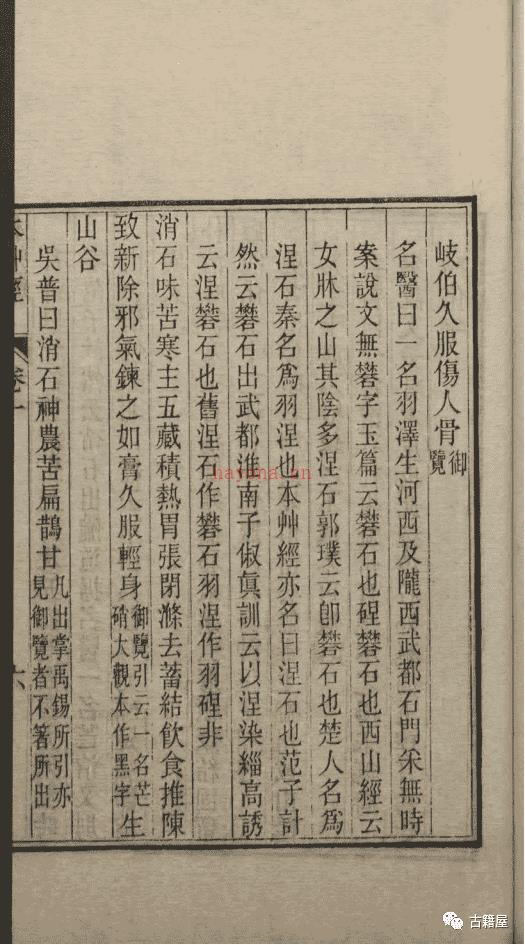 岐伯久服傷人骨御覽
名醫曰一名羽澤生河西及隴西武都石門采無時
案說文無礬字玉篇云礬石也硓礬石也西山經云
女牀之山其陰多涅石郭璞云即礬石也楚人名爲
涅石秦名爲羽涅也本艸經亦名曰涅石也范子計
然云礬石出武都淮南子俶眞訓云以涅染緇高誘
云涅礬石也舊涅石作礬石羽涅作羽䂼非
消石味苦寒主五藏積熱胃張閉滌去蓄結飲食推陳
致新除邪氣鍊之如膏久服輕身御覽引云一名芒硝大觀本作黑字生
山谷
吳普曰消石神農苦扁鵲甘凡出掌禹錫所引亦見御覽者不箸所出
本艸經 卷一 六
nayona.cn
古籍屋